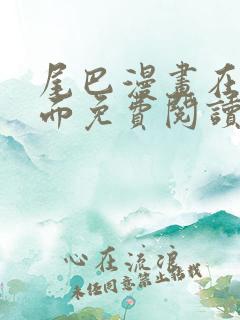 尾巴漫畫在
而免費閱讀
心在流浪
未经同意禁止转载